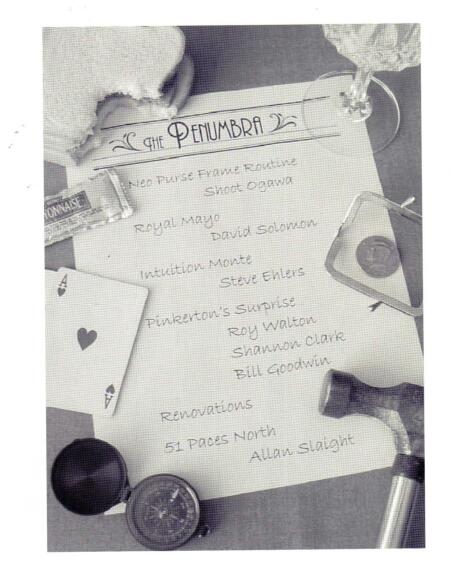 THE PENUMBRA
Neo Purse Frame Routine
Shoot Ogawa
Royal Mayo
David Solomon
YONNAISE
Intuition Monte
Steve Ehlers
A
Pinkerton's Surprise
Roy Walton
Shannon Clark
Bill Goodwin
A
Renovations
51 Paces North
Allan Slaight